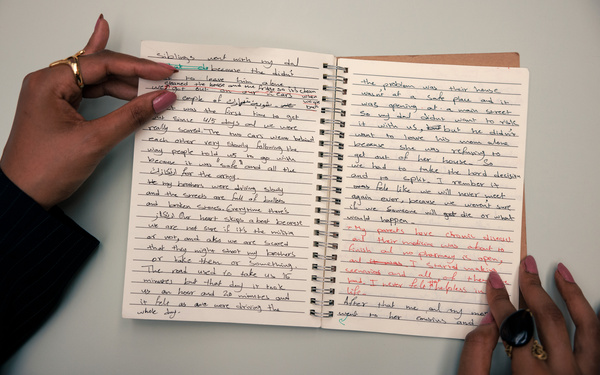 siblings went with my dad
because the didn't
to leave him alone
cleaned the house and the fridge so it's clean
we got out on our 2 cars when
couple of
was the first time to get
out since 4/5 days and we were
really scared. The two cars were behind
each other very slowly following the
way people told us to go with
because it was "safe" and all the
for the army.
my brothers were driving slowly
and the streets are full of bullets
and broken stones. Everytime there's
our heart skips a beat because
we are not sure if it's the militia
or not, and also we are scared
that they might shoot my brothers
or take them or something.
The road used to take us 15
minutes but that day it took
us an hour and 20 minutes and
it felt as we were driving the
whole day.
the problem was their house
wasn't at a safe place and it
was opening at a main street
so my dad didn't want to risk
it with us, but he didn't
want to leave his mom alone
because she was refusing to
get out of her house. So
we had to take the hard decision
and to split. I remember it
felt like we will never meet
again ever, because we weren't sure
if we someone will get die or what
would happen.
* My parents have chronic disease
and their medicine was about to
finish and no pharmacy is opening
and I started
scenarios and all of them
but I never felt helpless in
life.
After that me and my
went to her cousins and